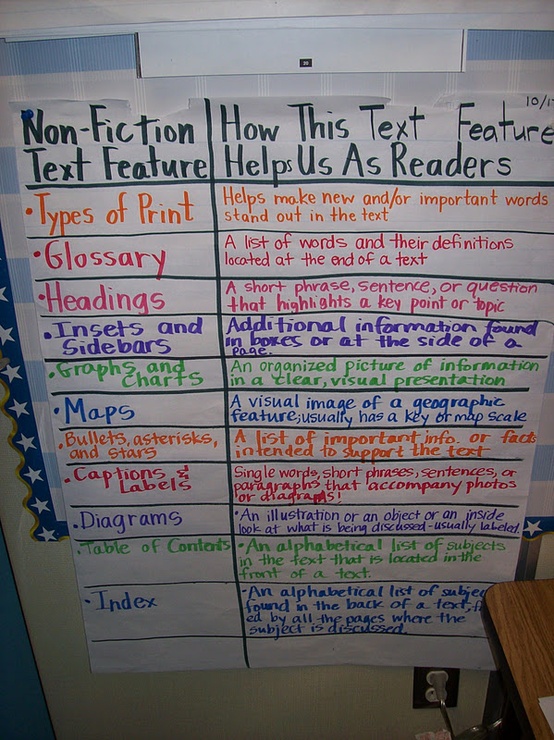 10/1
Non-Fiction
Text Feature
How This Text Feature
Helps Us As Readers
•Types of Print
Helps make new and/or important words
stand out in the text
•Glossary
A list of words and their definitions
located at the end of a text
•Headings
A short phrase, sentence, or question
that highlights a key point or topic
•Insets and
Sidebars
Additional information found
in boxes or at the side of a
page.
•Graphs and
charts
An organized picture of information
in a clear, visual presentation
•Maps
A visual image of a geographic
feature; usually has a key or map scale
•Bullets, asterisks,
and stars
A list of important info. or facts
intended to support the text
•Captions &
Labels
Single words, short phrases, sentences, or
paragraphs that accompany photos
or diagrams!
•Diagrams
•An illustration or an object or an inside
look at what is being discussed-usually labeled.
•Table of Contents
•An alphabetical list of subjects
in the text that is located in the
front of a text.
•Index
•An alphabetical list of subjec
found in the back of a text, f
ed by all the pages where the
subject is discussed.